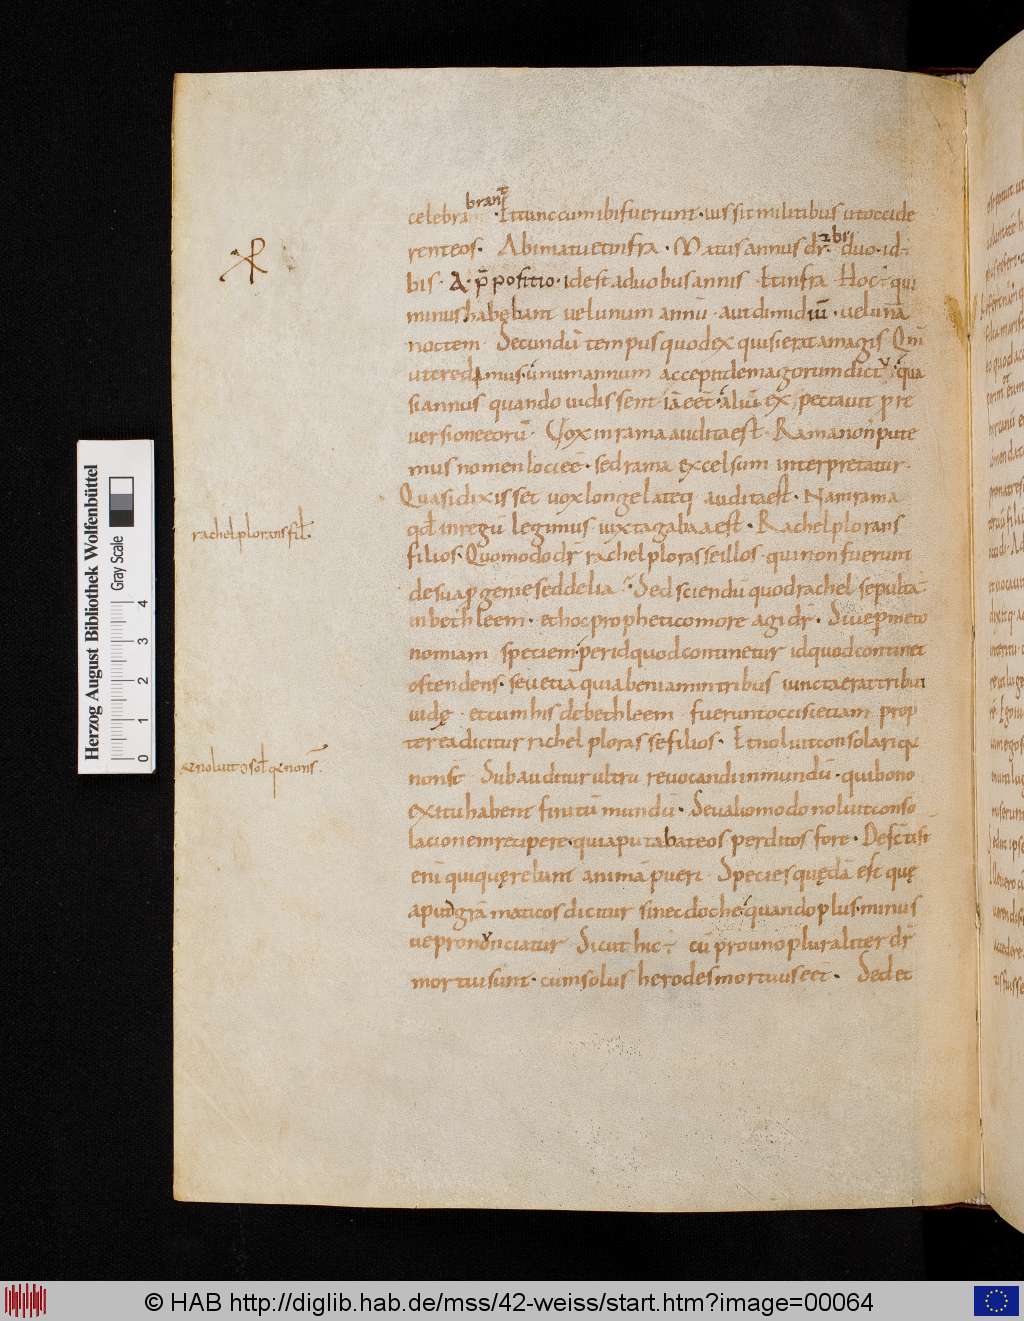 celebra brant · Et tunc cum ibi fuerunt · iussit militibus ut occide
rent eos · A bimatu et infra · Natus annus dr̄ · duo · id
bis · A · p̄positio · id est a duobus annis · Et infra · Hoc ÷ qui
minus habebant vel unum annū · aut dimidiū · vel unā
noctem · Secundū tempus quod exquisierat a magis · Qm̄
ut credamus · unum annum accepit de magorum dictis · qua
si annus quando vidissent iā eēt · aliū expectavit p re
versione eorū · Vox in rama audita est · Rama non pute
mus nomen loci eē · sed rama excelsum interpretatur ·
Quasi dixisset vox longe lateq; audita est · Nam rama
qđ in regū legimus iuxta gabaa est · Rachel plorans
filios · Quomodo dr̄ rachel plorasse illos · qui non fuerunt
de sua pgenie sed de lia · Sed sciendū quod rachel sepulta
in bethleem · et hoc prophetico more agi dr̄ · Sive p meto
nomiam speciem · per id quod continetur id quod continet
ostendens · seu etiā quia beniamin tribus iuncta erat tribui
iudę · et cum his de bethleem fuerunt occisi etiam prop
terea dicitur rachel plorasse filios · Et noluit consolari q
non st̄ · Subauditur ultru revocandi in mundū · qui bono
exitu habent finitū mundū · Seu aliomodo noluit conso
lacionem recipere · quia putabat eos perditos fore · Defc̄ti st̄
enī qui quęrebunt animā pueri · Species quędā est quę
apud grāmaticos dicitur sinecdoche · quando plus · minus
ve pronunciatur · Sicut hic ÷ cū pro uno pluraliter dr̄
mortui sunt · cum solus herodes mortuus eēt · Sed et
rachel plorans fil̄ ·
& noluit ɔsol̄ q non s̄ ·
Herzog August Bibliothek Wolfenbüttel
Gray Scale
0 1 2 3 4
© HAB http://diglib.hab.de/mss/42-weiss/start.htm?image=00064